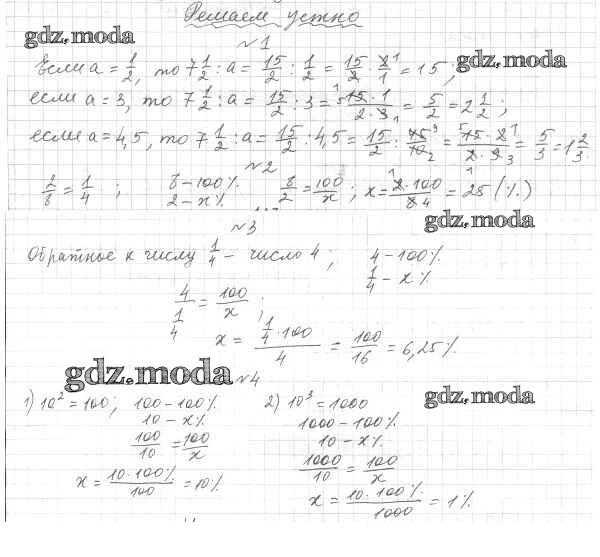 Решаем устно
gdz.moda
№1
Если a = 1/2, то 7 1/2 : a = 15/2 : 1/2 = 15/2 · 2/1 = 15;
gdz.moda
если a = 3, то 7 1/2 : a = 15/2 : 3 = 15·1/2·3 = 5/2 = 2 1/2;
если a = 4,5, то 7 1/2 : a = 15/2 : 4,5 = 15/2 : 45/10 = 15·2/2·9 = 5/3 = 1 2/3
№2
2/8 = 1/4 ; 8 - 100% 8/2 = 100/x ; x = 2·100/8 = 25 (%)
2 - x%
gdz.moda
№3
Обратное к числу 1/4 - число 4; 4 - 100%
1/4 - x%
4/(1/4) = 100/x ;
x = (1/4 · 100)/4 = 100/16 = 6,25%.
gdz.moda
№4
gdz.moda
1) 10² = 100; 100 - 100% 2) 10³ = 1000
10 - x% 1000 - 100%
100/10 = 100/x 10 - x%
1000/10 = 100/x
x = 10·100%/100 = 10%
x = 10·100%/1000 = 1%